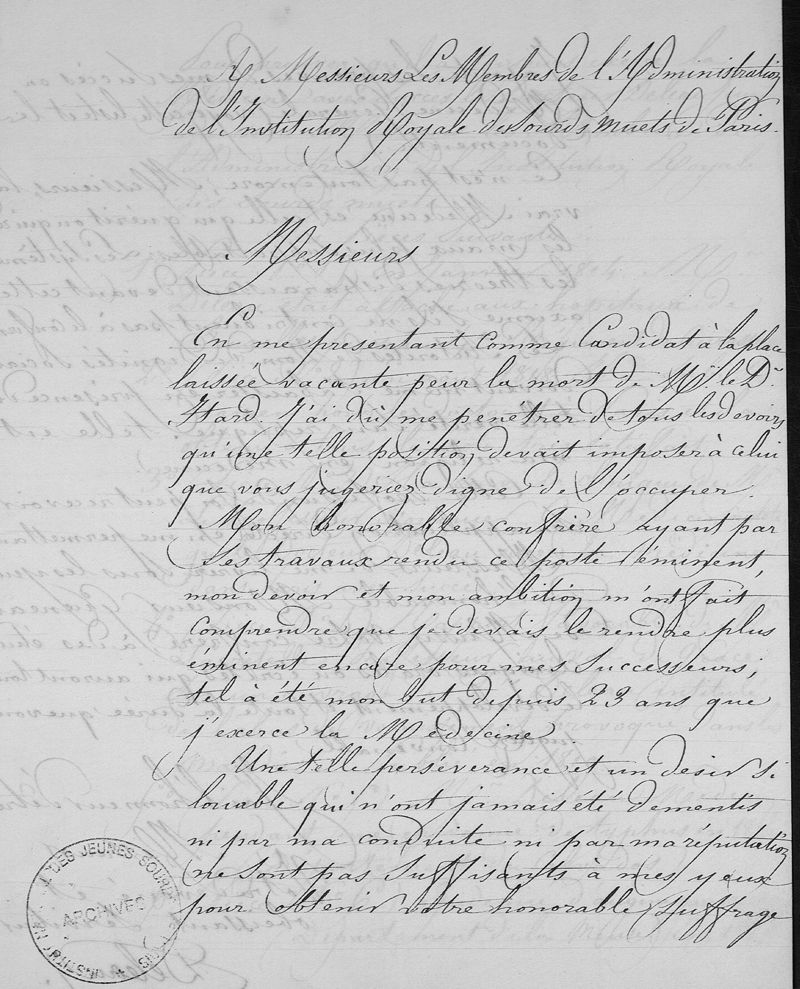 A Messieurs Les Membres de l'Administration
de l'Institution Royale des Sourds muets de Paris.
Messieurs
En me présentant comme Candidat à la place
laissée vacante pour la mort de Mr. le Dr.
Itard. J'ai dû me penétrer de tous les devoirs
qu'une telle position devait imposer à celui
que vous jugeriez digne de l'occuper.
Mon honorable confrère ayant par
ses travaux rendu ce poste éminent,
mon devoir et mon ambition m'ont fait
comprendre que je devais le rendre plus
éminent encore pour mes successeurs;
tel à été mon but depuis 23 ans que
j'exerce la Medecine.
Une telle perséverance et un desir si
louable qui n'ont jamais été dementis
ni par ma conduite ni par ma réputation
ne sont pas suffisants à mes yeux
pour obtenir votre honorable suffrage
DES JEUNES SOURDS
ARCHIVES